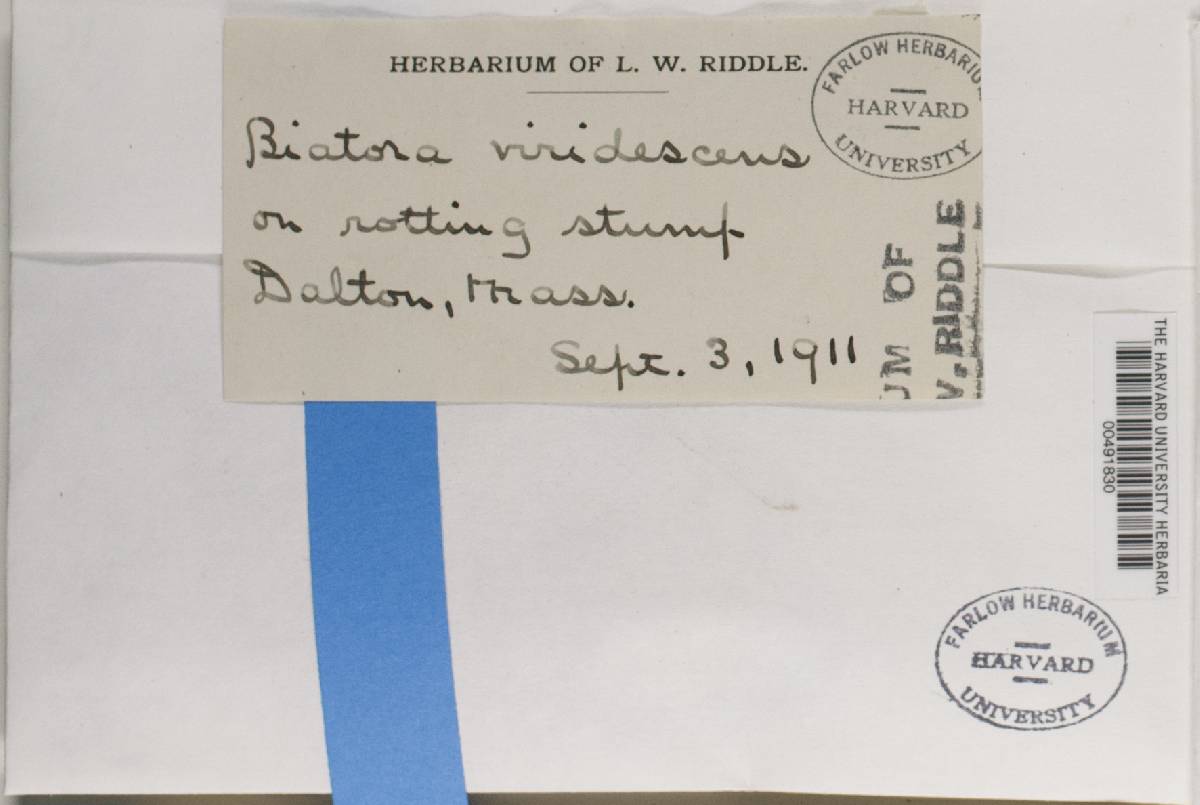 HERBARIUM OF L. W. RIDDLE.
Biatora viridescens
on rotting stump
Dalton, Mass.
Sept. 3, 1911
FARLOW HERBARIU
HARVARD
UNIVERSITY
UM OF
W. RIDDLE
THE HARVARD UNIVERSITY HERBARIA
00491830
FARLOW HERBARIUM
HARVARD
UNIVERSITY